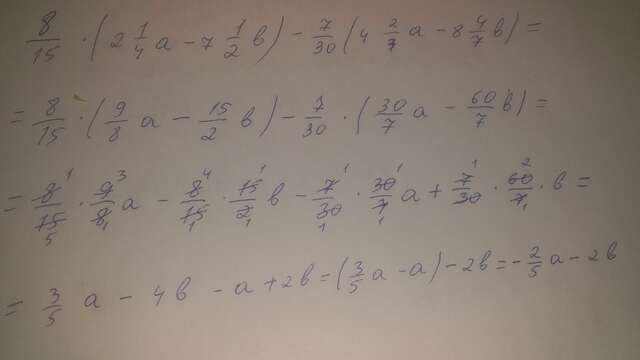 8/15 · (2 1/4 a - 7 1/2 b) - 7/30 (4 2/7 a - 8 4/7 b) =
= 8/15 · (9/8 a - 15/2 b) - 7/30 · (30/7 a - 60/7 b) =
= 8/15 · 9/8 a - 8/15 · 15/2 b - 7/30 · 30/7 a + 7/30 · 60/7 · b =
= 3/5 a - 4b - a + 2b = (3/5 a - a) - 2b = - 2/5 a - 2b